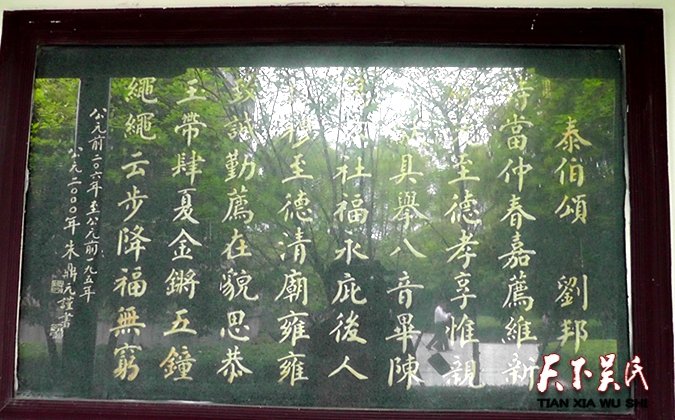 泰伯頌 劉邦
時當仲春嘉薦維新
至德孝享惟親
具舉八音畢陳
社福永庇後人
穆至德清廟雍雍
致誠勤薦在貌思恭
王帶肆夏金鏘五鐘
繩繩云步降福無窮
公元前二〇六年至公元前一九五年
公元二〇〇〇年 朱鼎元謹書
天下吴氏
TIAN XIA WU SHI